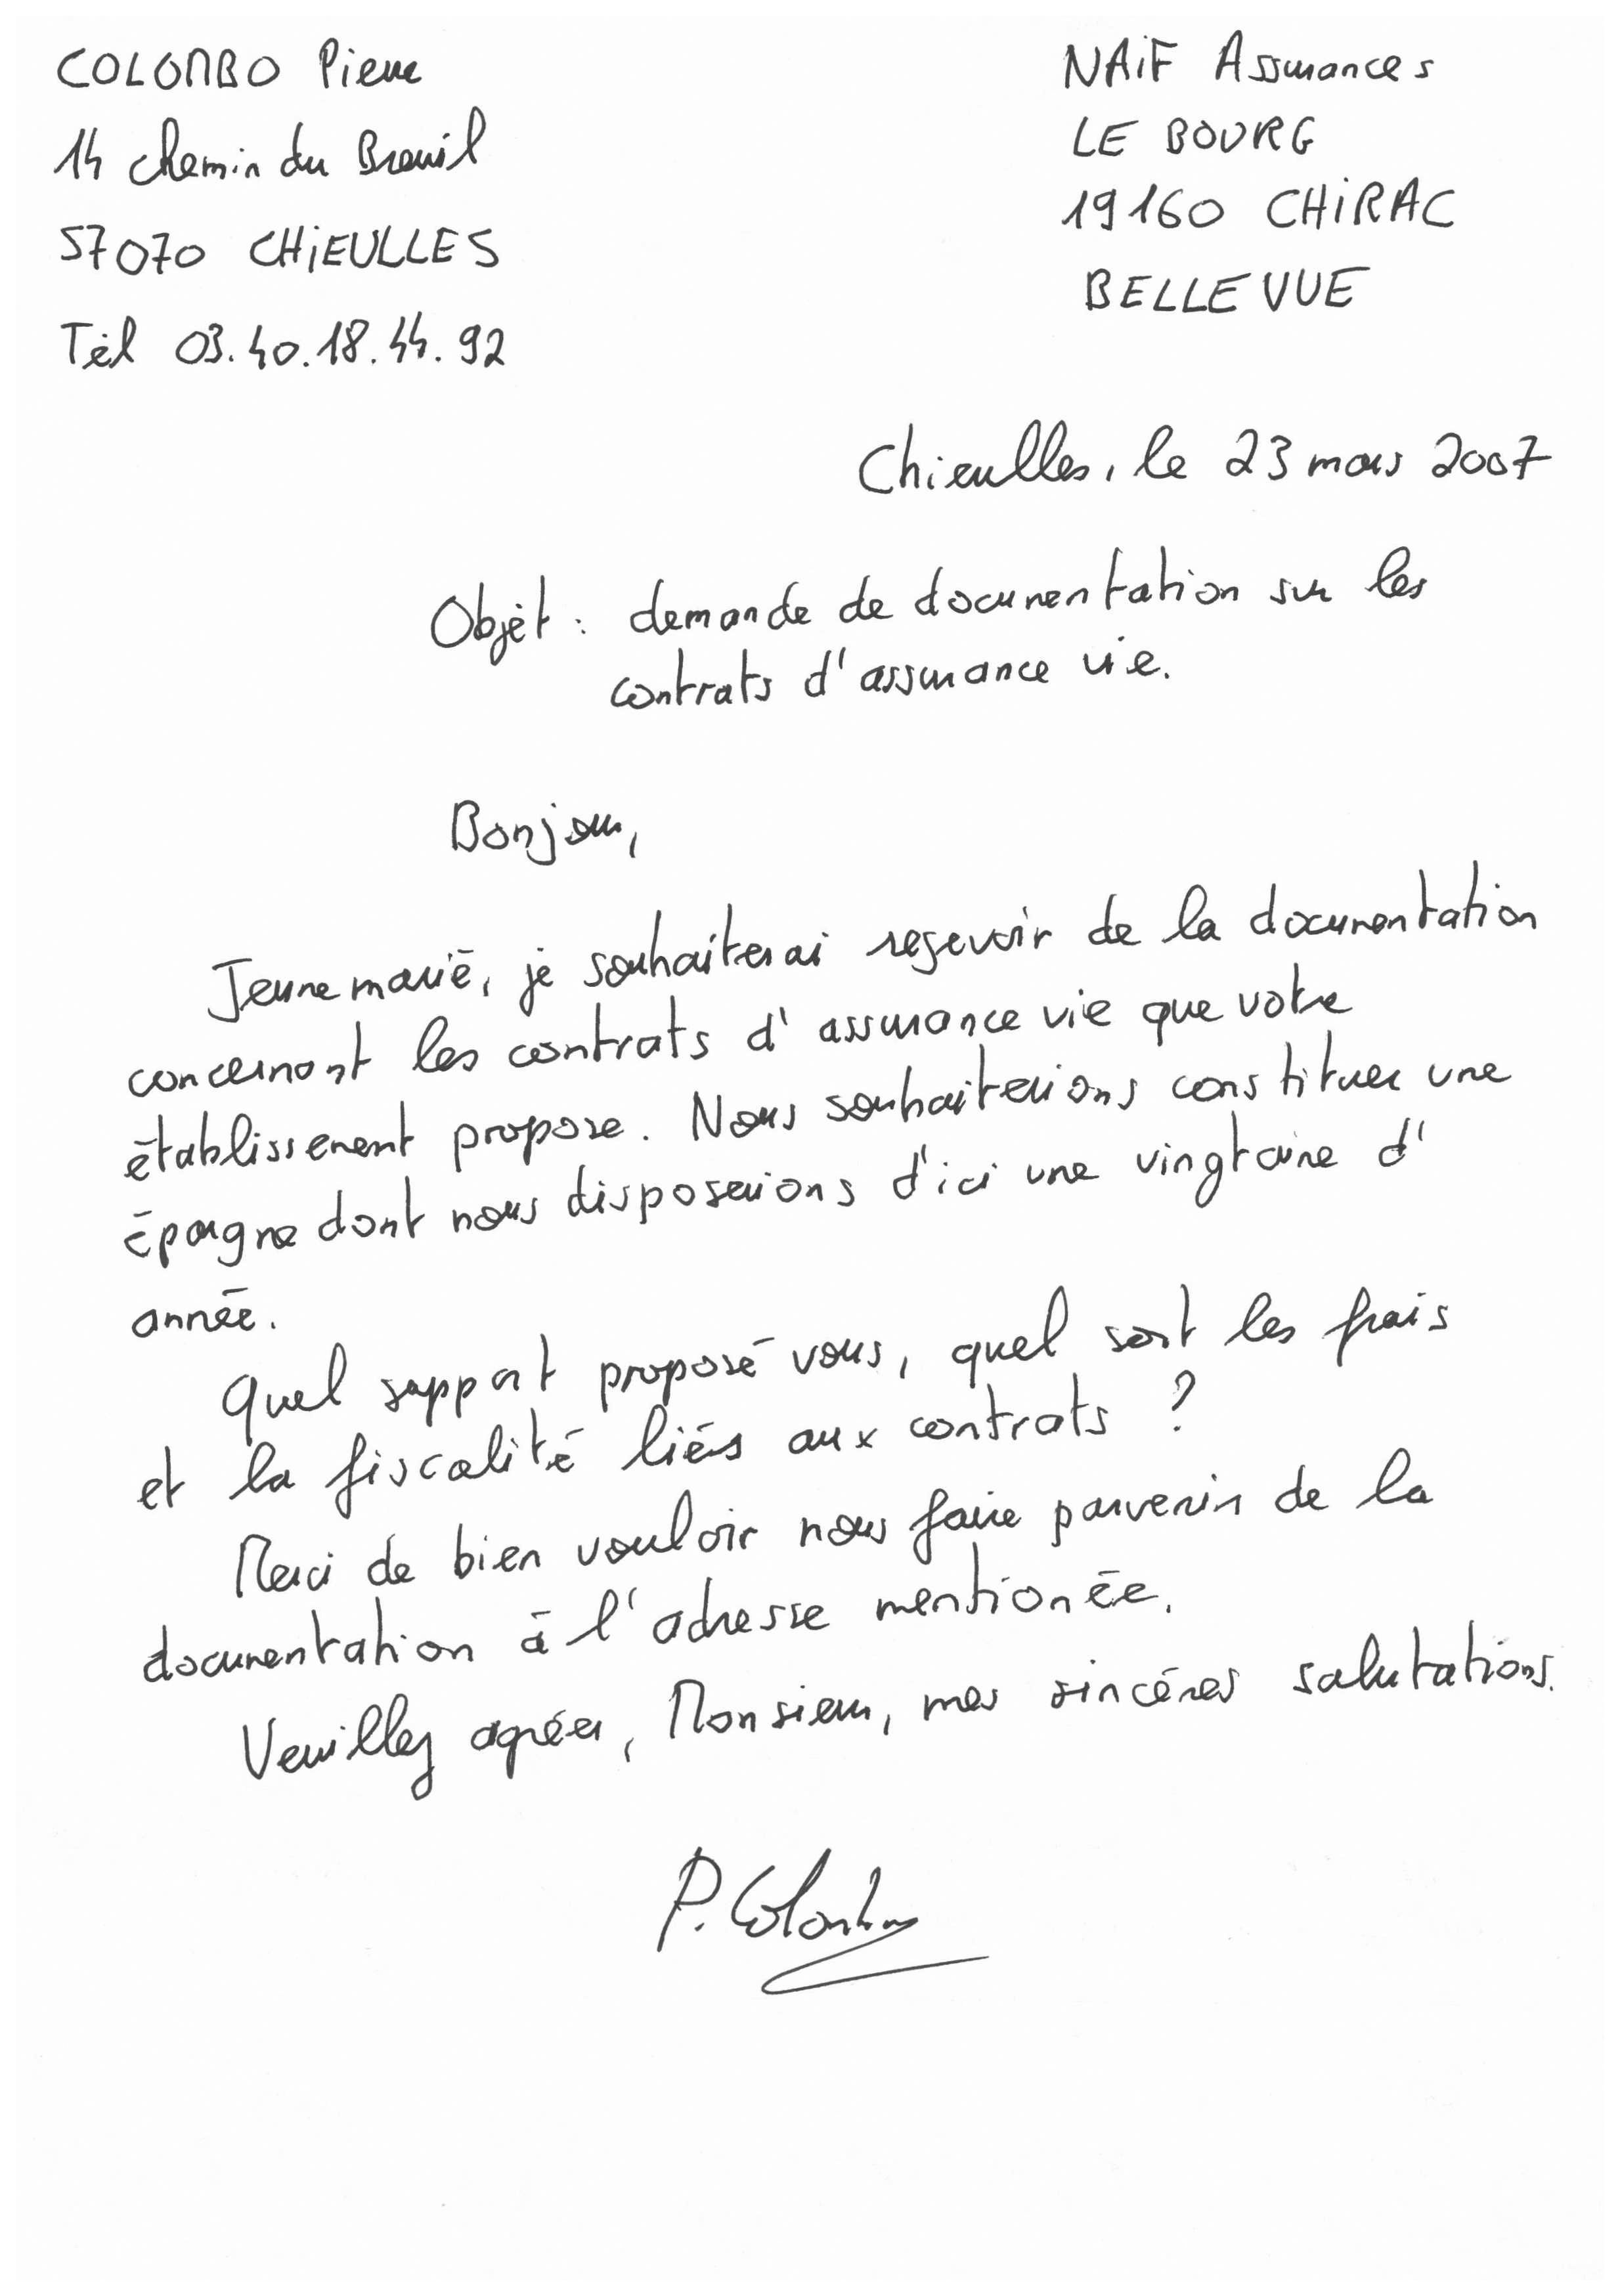 COLOMBO Pierre
14 chemin du Breuil
57070 CHiEULLES
Tèl 03.40.18.44.92
NAiF Assurances
LE BOURG
19160 CHiRAC
BELLEVUE
Chieulles, le 23 mars 2007
Objèt : demande de documentation sur les
contrats d'assurance vie.
Bonjour,
Jeune marié, je souhaiterai resevoir de la documentation
concernant les contrats d'assurance vie que votre
établissement propose. Nous souhaiterions constituer une
épargne dont nous disposerions d'ici une vingtaine d'
année.
Quel support proposé vous, quel sont les frais
et la fiscalité liés aux contrats ?
Merci de bien vouloir nous faire parvenir de la
documentation à l'adresse mentionée.
Veuillez agréer, Monsieur, mes sincéres salutations.
P. Colombo